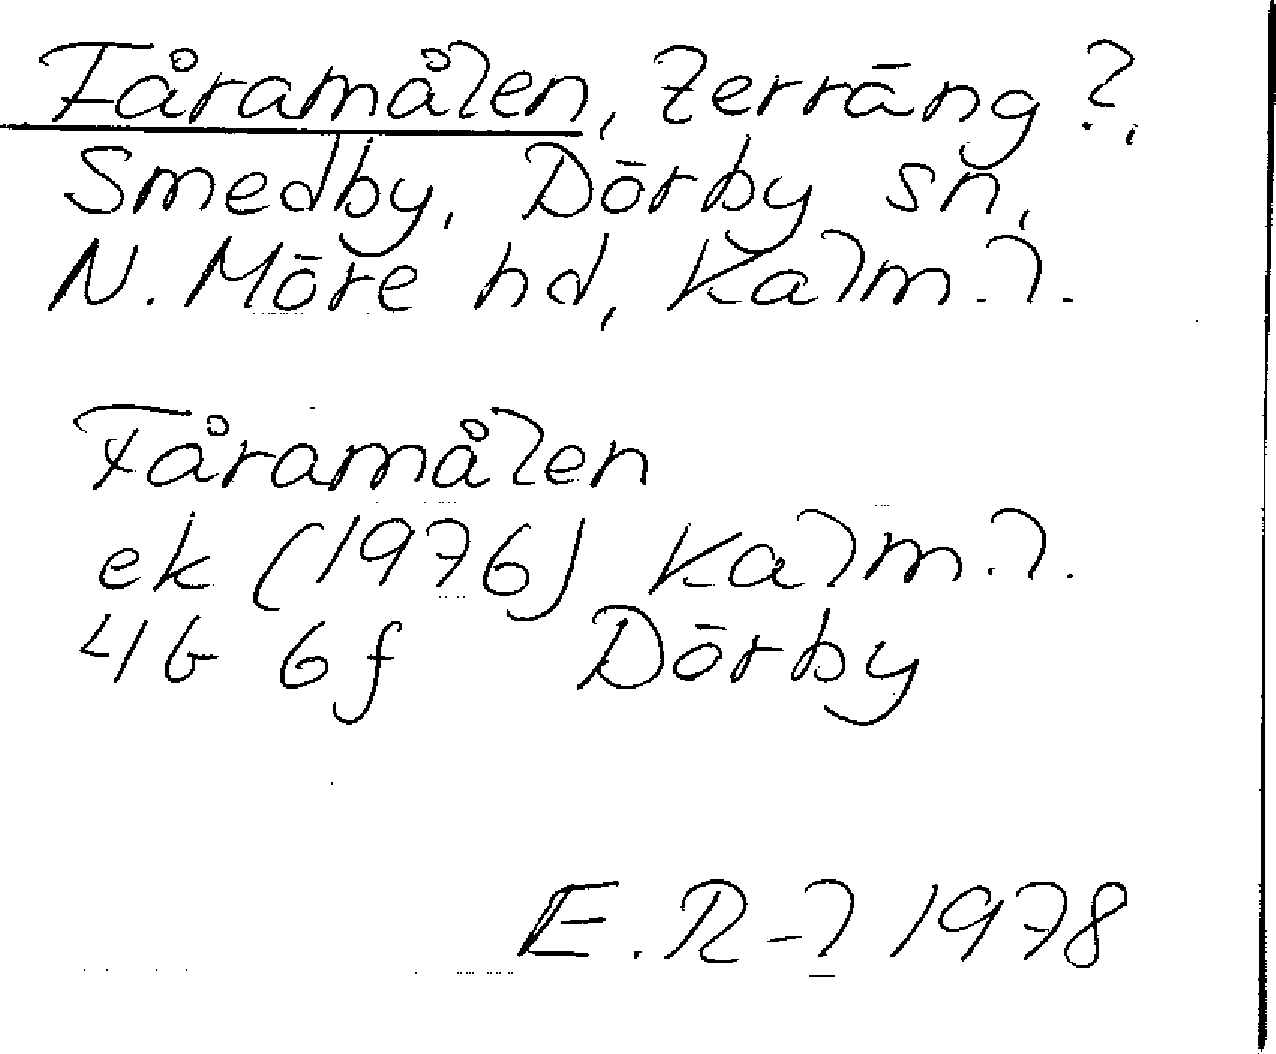 Fåramålen, terräng?,
Smedby, Dörby sn,
N. Möre hd, Kalm. l.
Fåramålen
ek (1976) Kalm. l.
4G 6f Dörby
E. R-l 1978